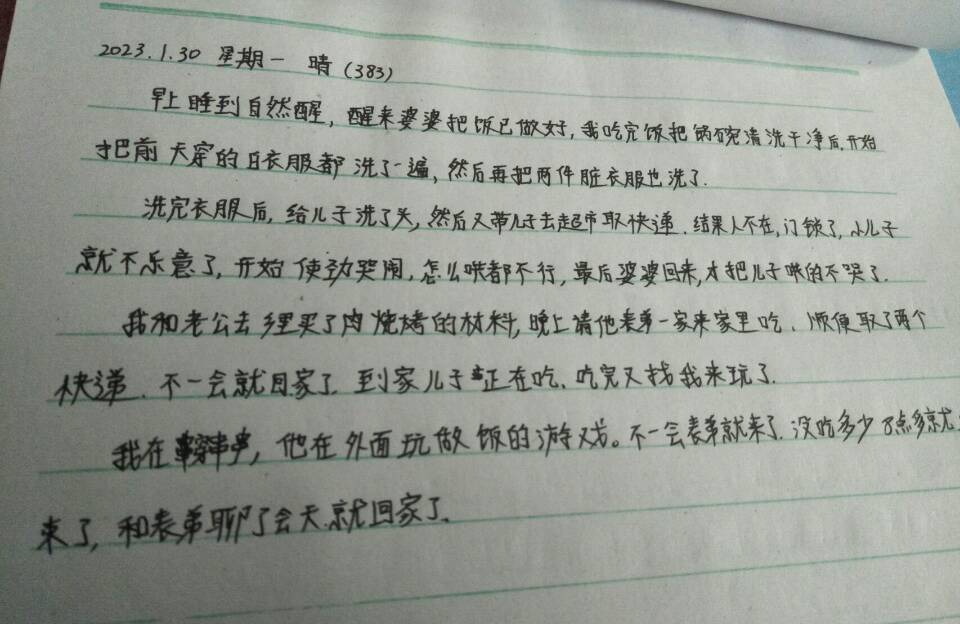 2023.1.30 星期一 晴 (383)
早上睡到自然醒，醒来婆婆把饭已做好，我吃完饭把锅碗清洗干净后.开始
把前天穿的旧衣服都洗了一遍，然后再把两件脏衣服也洗了.
洗完衣服后，给儿子洗了头，然后又带儿子去超市取快递.结果人不在，门锁了，小儿子
就不乐意了，开始使劲哭闹，怎么哄都不行，最后婆婆回来，才把儿子哄的不哭了.
我和老公去乡里买了肉烧烤的材料，晚上请他表弟一家来家里吃.顺便取了两个
快递.不一会就回家了.到家儿子正在吃.吃完又找我来玩了.
我在串，他在外面玩做饭的游戏。不一会表弟就来了.没吃多少8点多就
来了，和表弟聊了会天.就回家了.